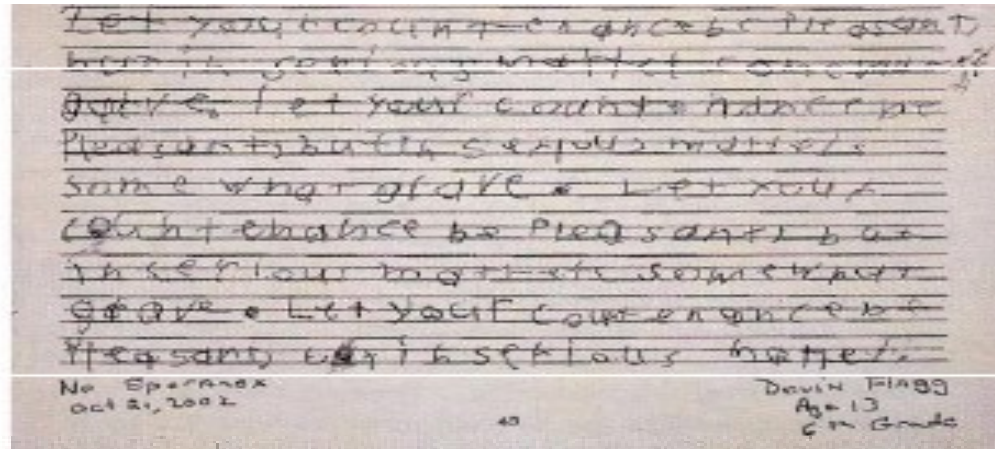 Let your countenance be Pleasant
but in serious matter somewhat
grave. Let your countenance be
Pleasant, but in serious matters
some what grave. Let your
countenance be Pleasant, but
in serious matters somewhat
grave. Let your countenance be
Pleasant, but in serious matters
No
Oct 21, 2002
43
Devin Flagg
Age 13
6th Grade